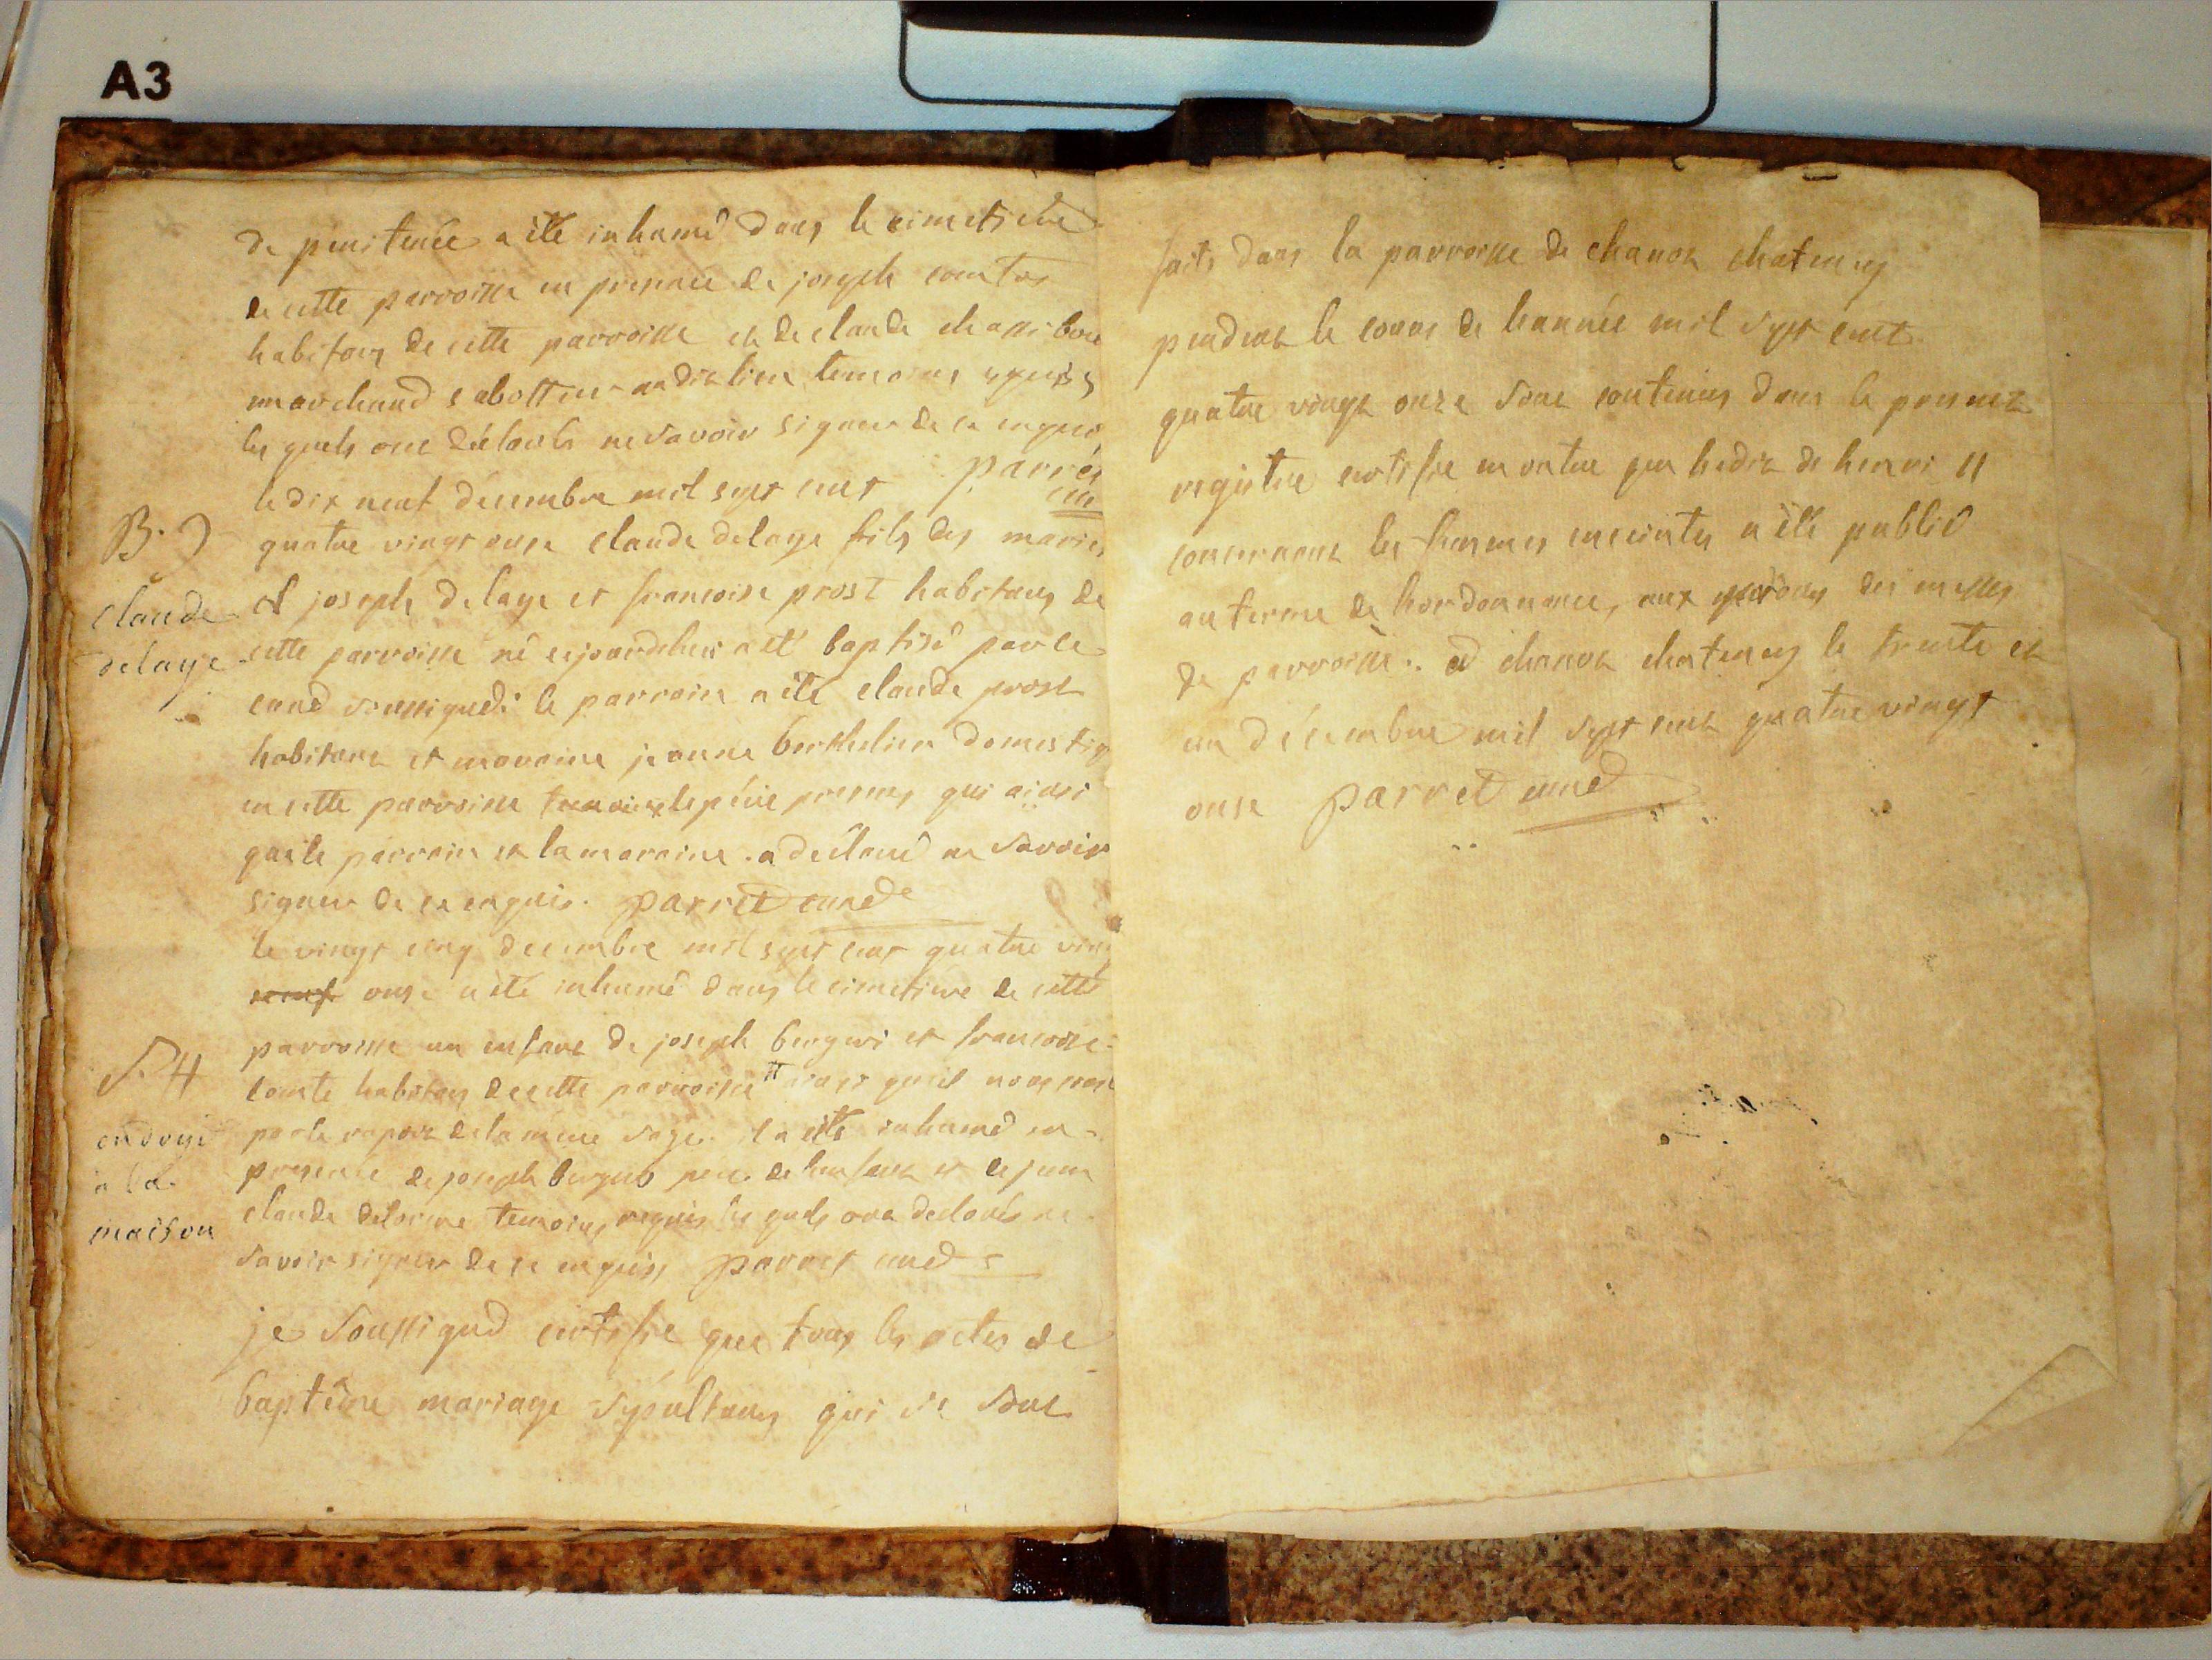 A3
de penitence a été inhumé dans le cimetiere
de cette parroisse en presence de joseph comtet
habitans de cette parroisse et de claude chassibou
marchand sabottier audit lieu temoins requis
les quels ont déclarés ne savoir signer de ce enquis
parret
curé
le dix neuf décembre mil sept cent
quatre vingt onze claude delaye fils des mariés
B. 9
claude
delaye
et joseph delaye et francoise prost habitans de
cette parroisse né cejourdehui a été baptisé par le
curé soussigned: le parrain a été claude prost
habitant et maraine jeanne berthelier domestiq
en cette parroisse le pére present qui ainsi
que le parrain et la maraine a déclaré ne savoir
signer de ce enquis. parret curé
le vingt cinq decembre mil sept cent quatre vingt
onze a été inhumé dans le cimetiere de cette
parroisse un enfant de joseph bergeri et francoise
S. 4
endoyé
à la
maison
comte habitans de cette parroisse
par le raport de la mere sage. il a été inhumé en
presence de joseph pere de l'enfant et de jean
claude delorme temoins requis les quels ont declarés ne
savoir signer de ce enquis parret curé
je soussigné certifie que tous les actes de
baptême mariage sépultures qui se sont
faits dans la parroisse de chanoz chatenay
pendant le cours de l'année mil sept cent
quatre vingt onze sont contenus dans le present
registre certifie en outre que l'edit de henri II
concernant les femmes enceintes a été publié
au terme de l'ordonnance, aux prônes des messes
de parroisse. à chanoz chatenay le trente et
un décembre mil sept cent quatre vingt
onze parret curé